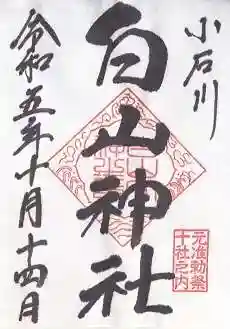 小石川
白山神社
元准勅祭
十社之内
令和五年十月十四日